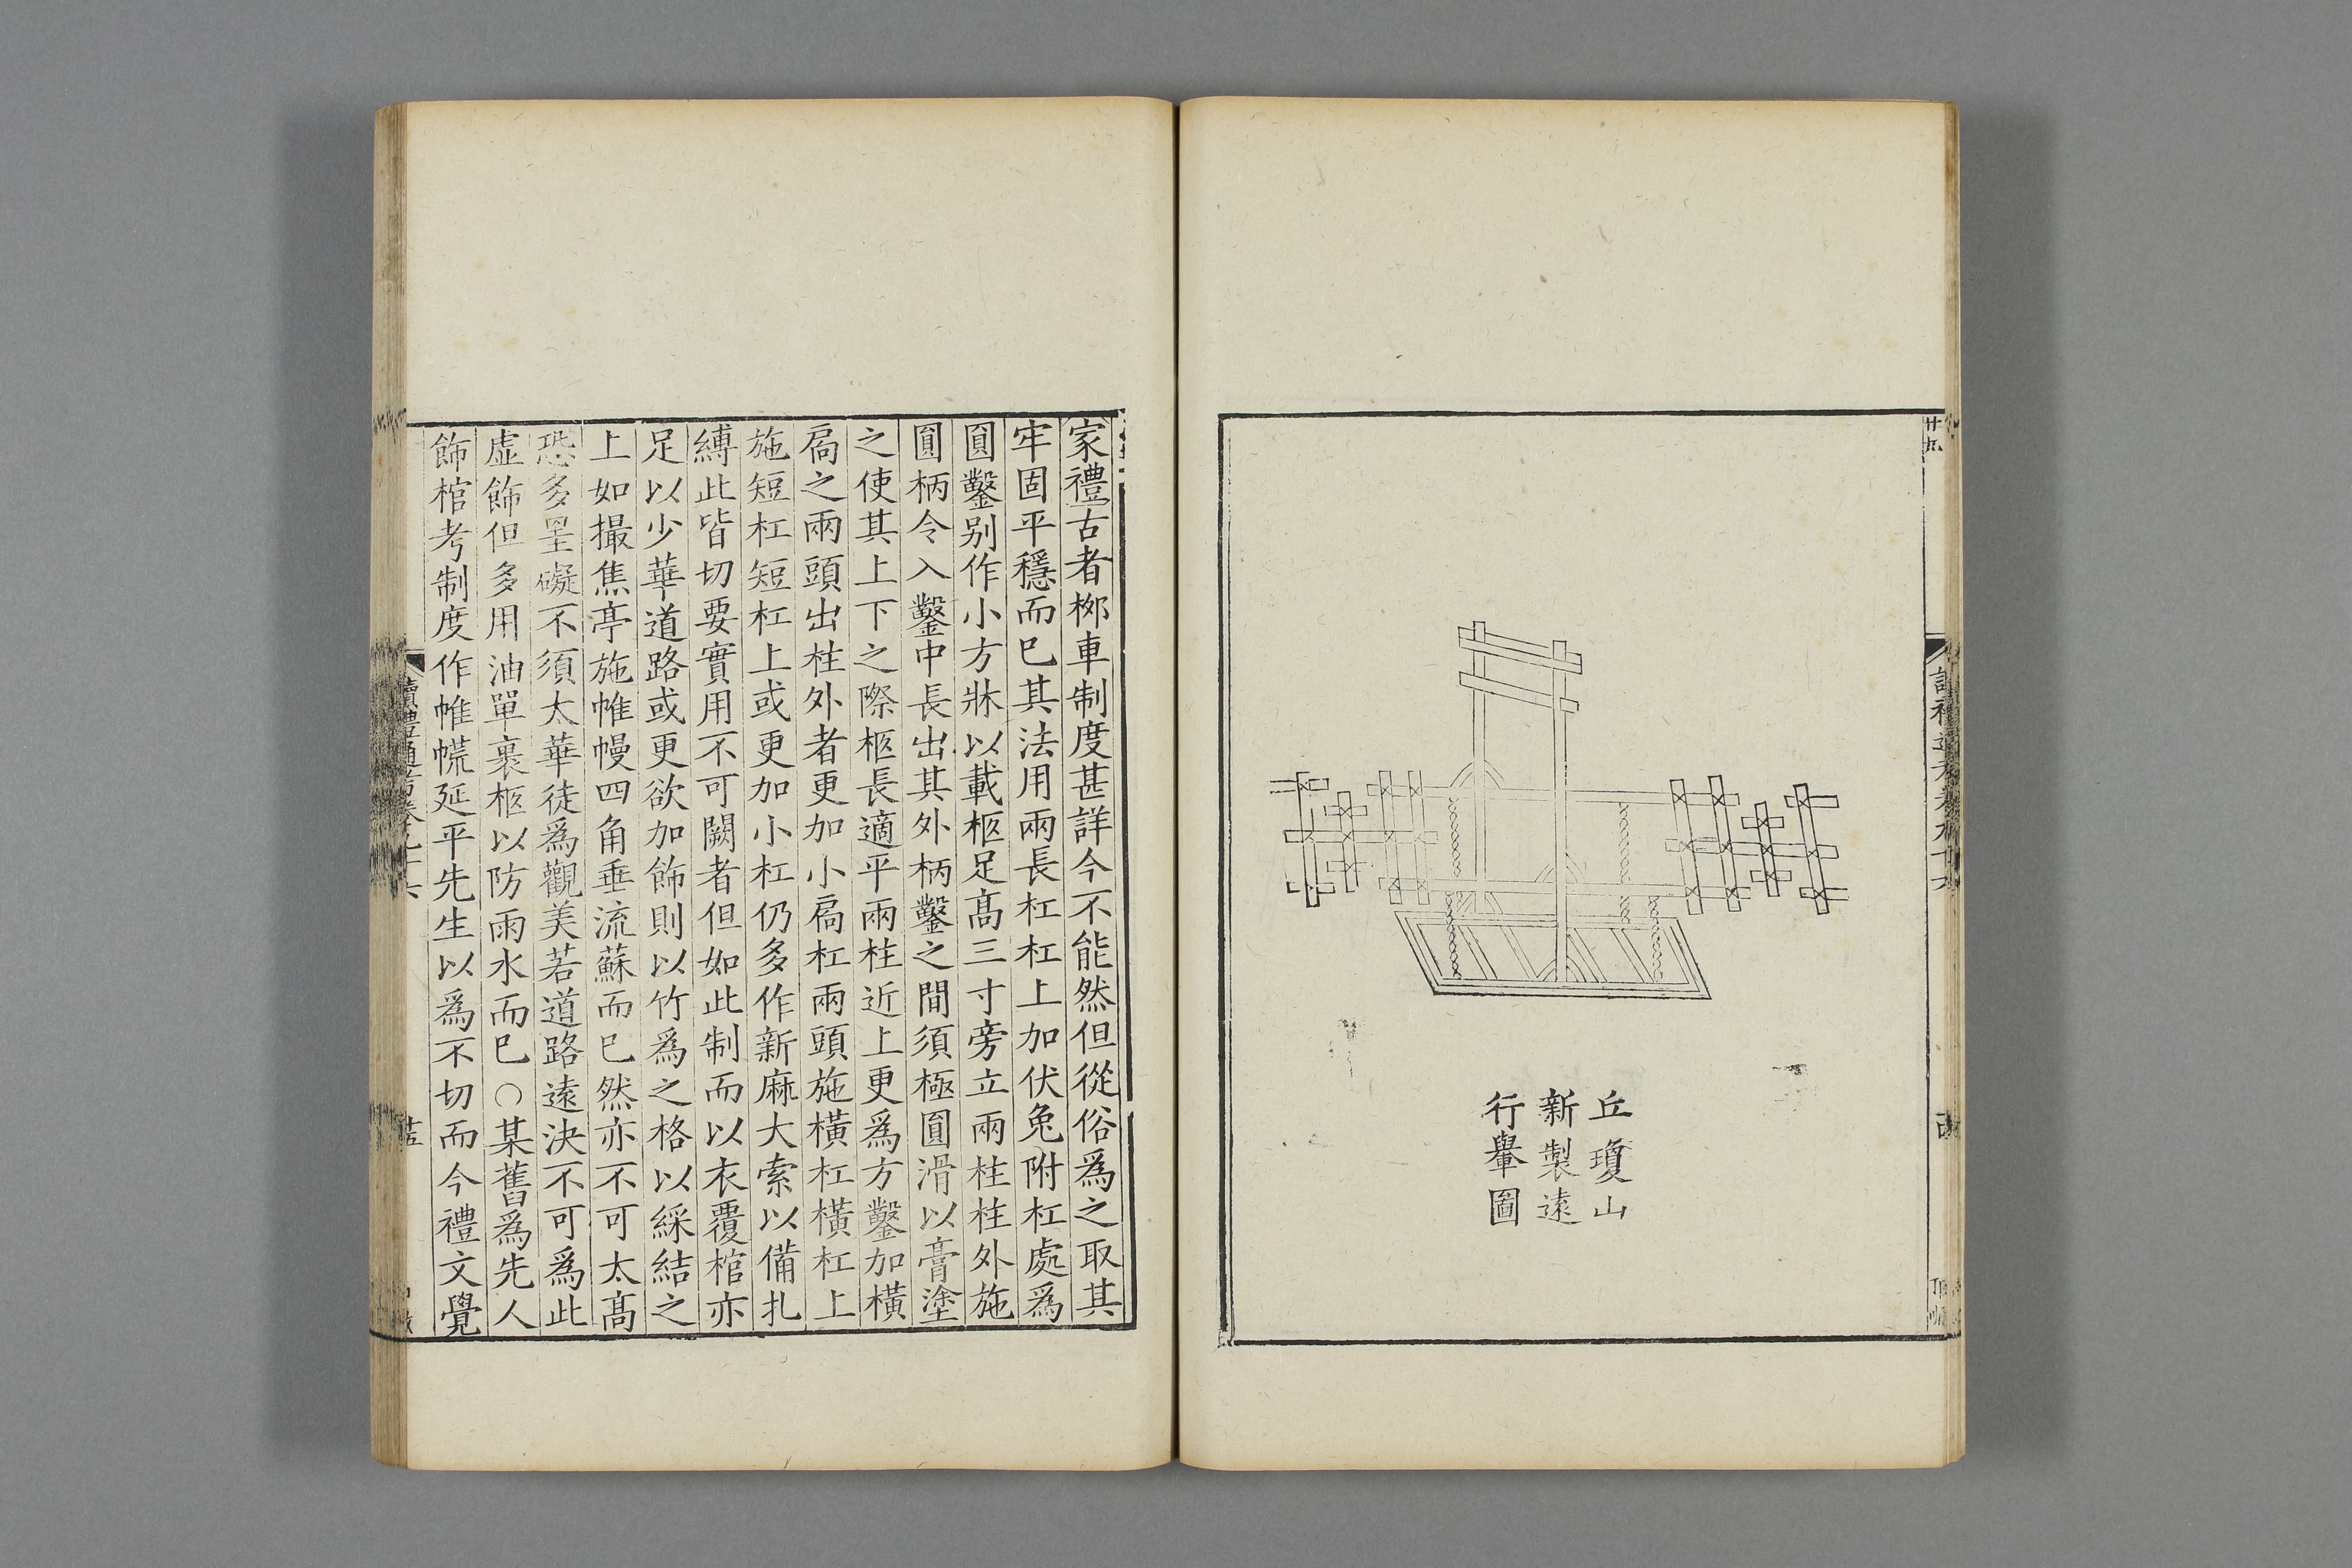 丘瓊山
新製遠
行轝圖
家禮古者柳車制度甚詳今不能然但從俗爲之取其
牢固平穩而已其法用兩長杠杠上加伏兔附杠處爲
圓鑿別作小方牀以載柩足高三寸旁立兩柱柱外施
圓枘令入鑿中長出其外枘鑿之間須極圓滑以膏塗
之使其上下之際柩長適平兩柱近上更爲方鑿加橫
扃之兩頭出柱外者更加小扃杠兩頭施橫杠橫杠上
施短杠短杠上或更加小杠仍多作新麻大索以備扎
縛此皆切要實用不可闕者但如此制而以衣覆棺亦
足以少華道路或更欲加飾則以竹爲之格以綵結之
上如撮焦亭施帷幔四角垂流蘇而已然亦不可太高
恐多罣礙不須太華徒爲觀美若道路遠決不可爲此
虛飾但多用油單裹柩以防雨水而已○某舊爲先人
飾棺考制度作帷幌延平先生以爲不切而今禮文覺
讀禮通考卷九十六